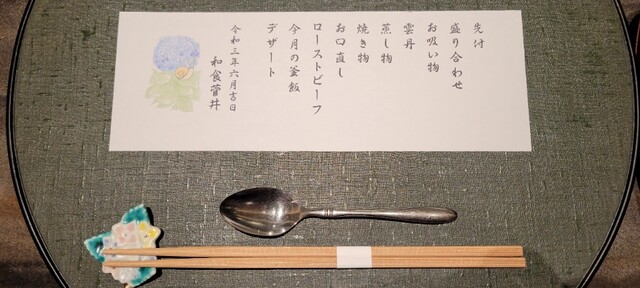 先付
盛り合わせ
お吸い物
雲丹
蒸し物
焼き物
お口直し
ローストビーフ
今月の釜飯
デザート
令和三年六月吉日
和食菅井